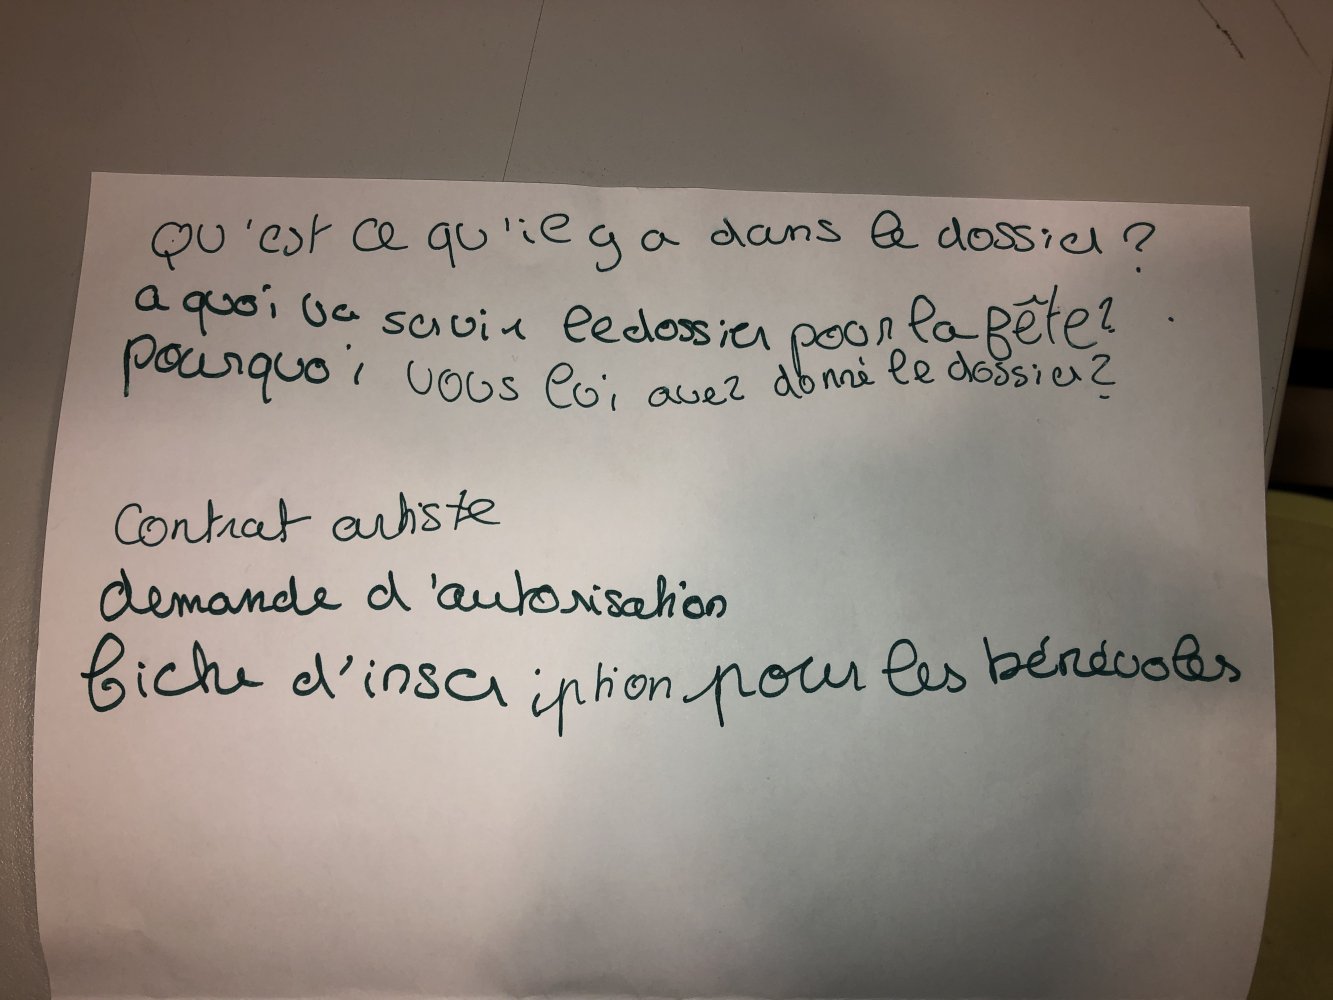 Qu'est ce qu'il y a dans le dossier ?
a quoi va servir le dossier pour la fête ?
pourquoi vous lui avez donné le dossier ?
Contrat artiste
demande d'autorisation
fiche d'inscription pour les bénévoles